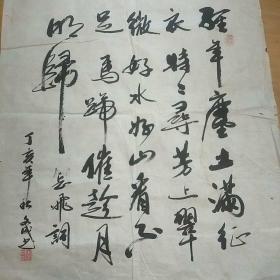 經年塵土滿征
衣特々尋芳上翠
微好水好山看不
足馬蹄催趁月
明歸
岳飛詞
丁亥年秋